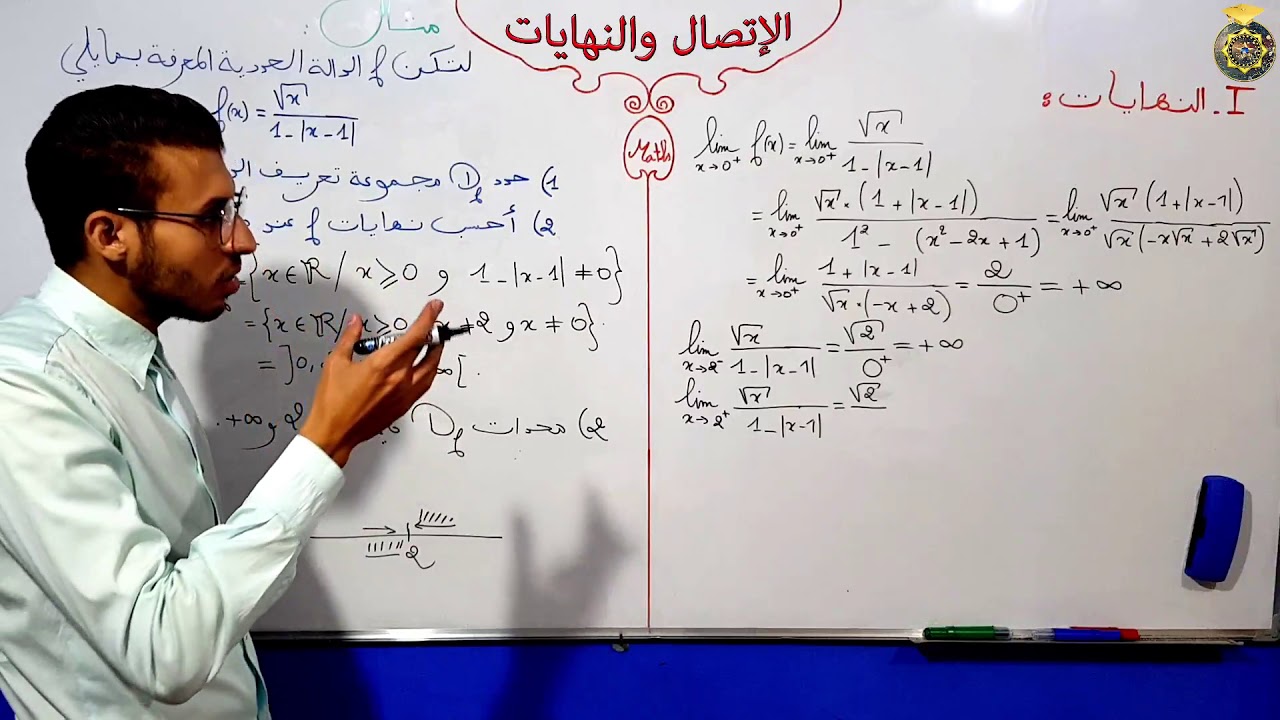 الإتصال والنهايات
Maths
مثال:
لتكن f الدالة العددية المعرفة بمايلي
f(x) = √x / (1-|x-1|)
1) حدد Df مجموعة تعريف
2) أحسب نهايات f عند
= {x∈ℝ / x ≥ 0 و 1-|x-1| ≠ 0}
= {x∈ℝ / x ≥ 0 ≠ 2 و x ≠ 0}.
= ]0, ∞[.
2) محدات Df 2 و +∞.
2
I - النهايات:
lim x→0⁺ f(x) = lim x→0⁺ √x / (1-|x-1|)
= lim x→0⁺ √x · (1+|x-1|) / (1² - (x²-2x+1)) = lim x→0⁺ √x (1+|x-1|) / (√x(-x√x+2√x))
= lim x→0⁺ (1+|x-1|) / (√x·(-x+2)) = 2 / 0⁺ = +∞
lim x→2⁻ √x / (1-|x-1|) = √2 / 0⁺ = +∞
lim x→2⁺ √x / (1-|x-1|) = √2